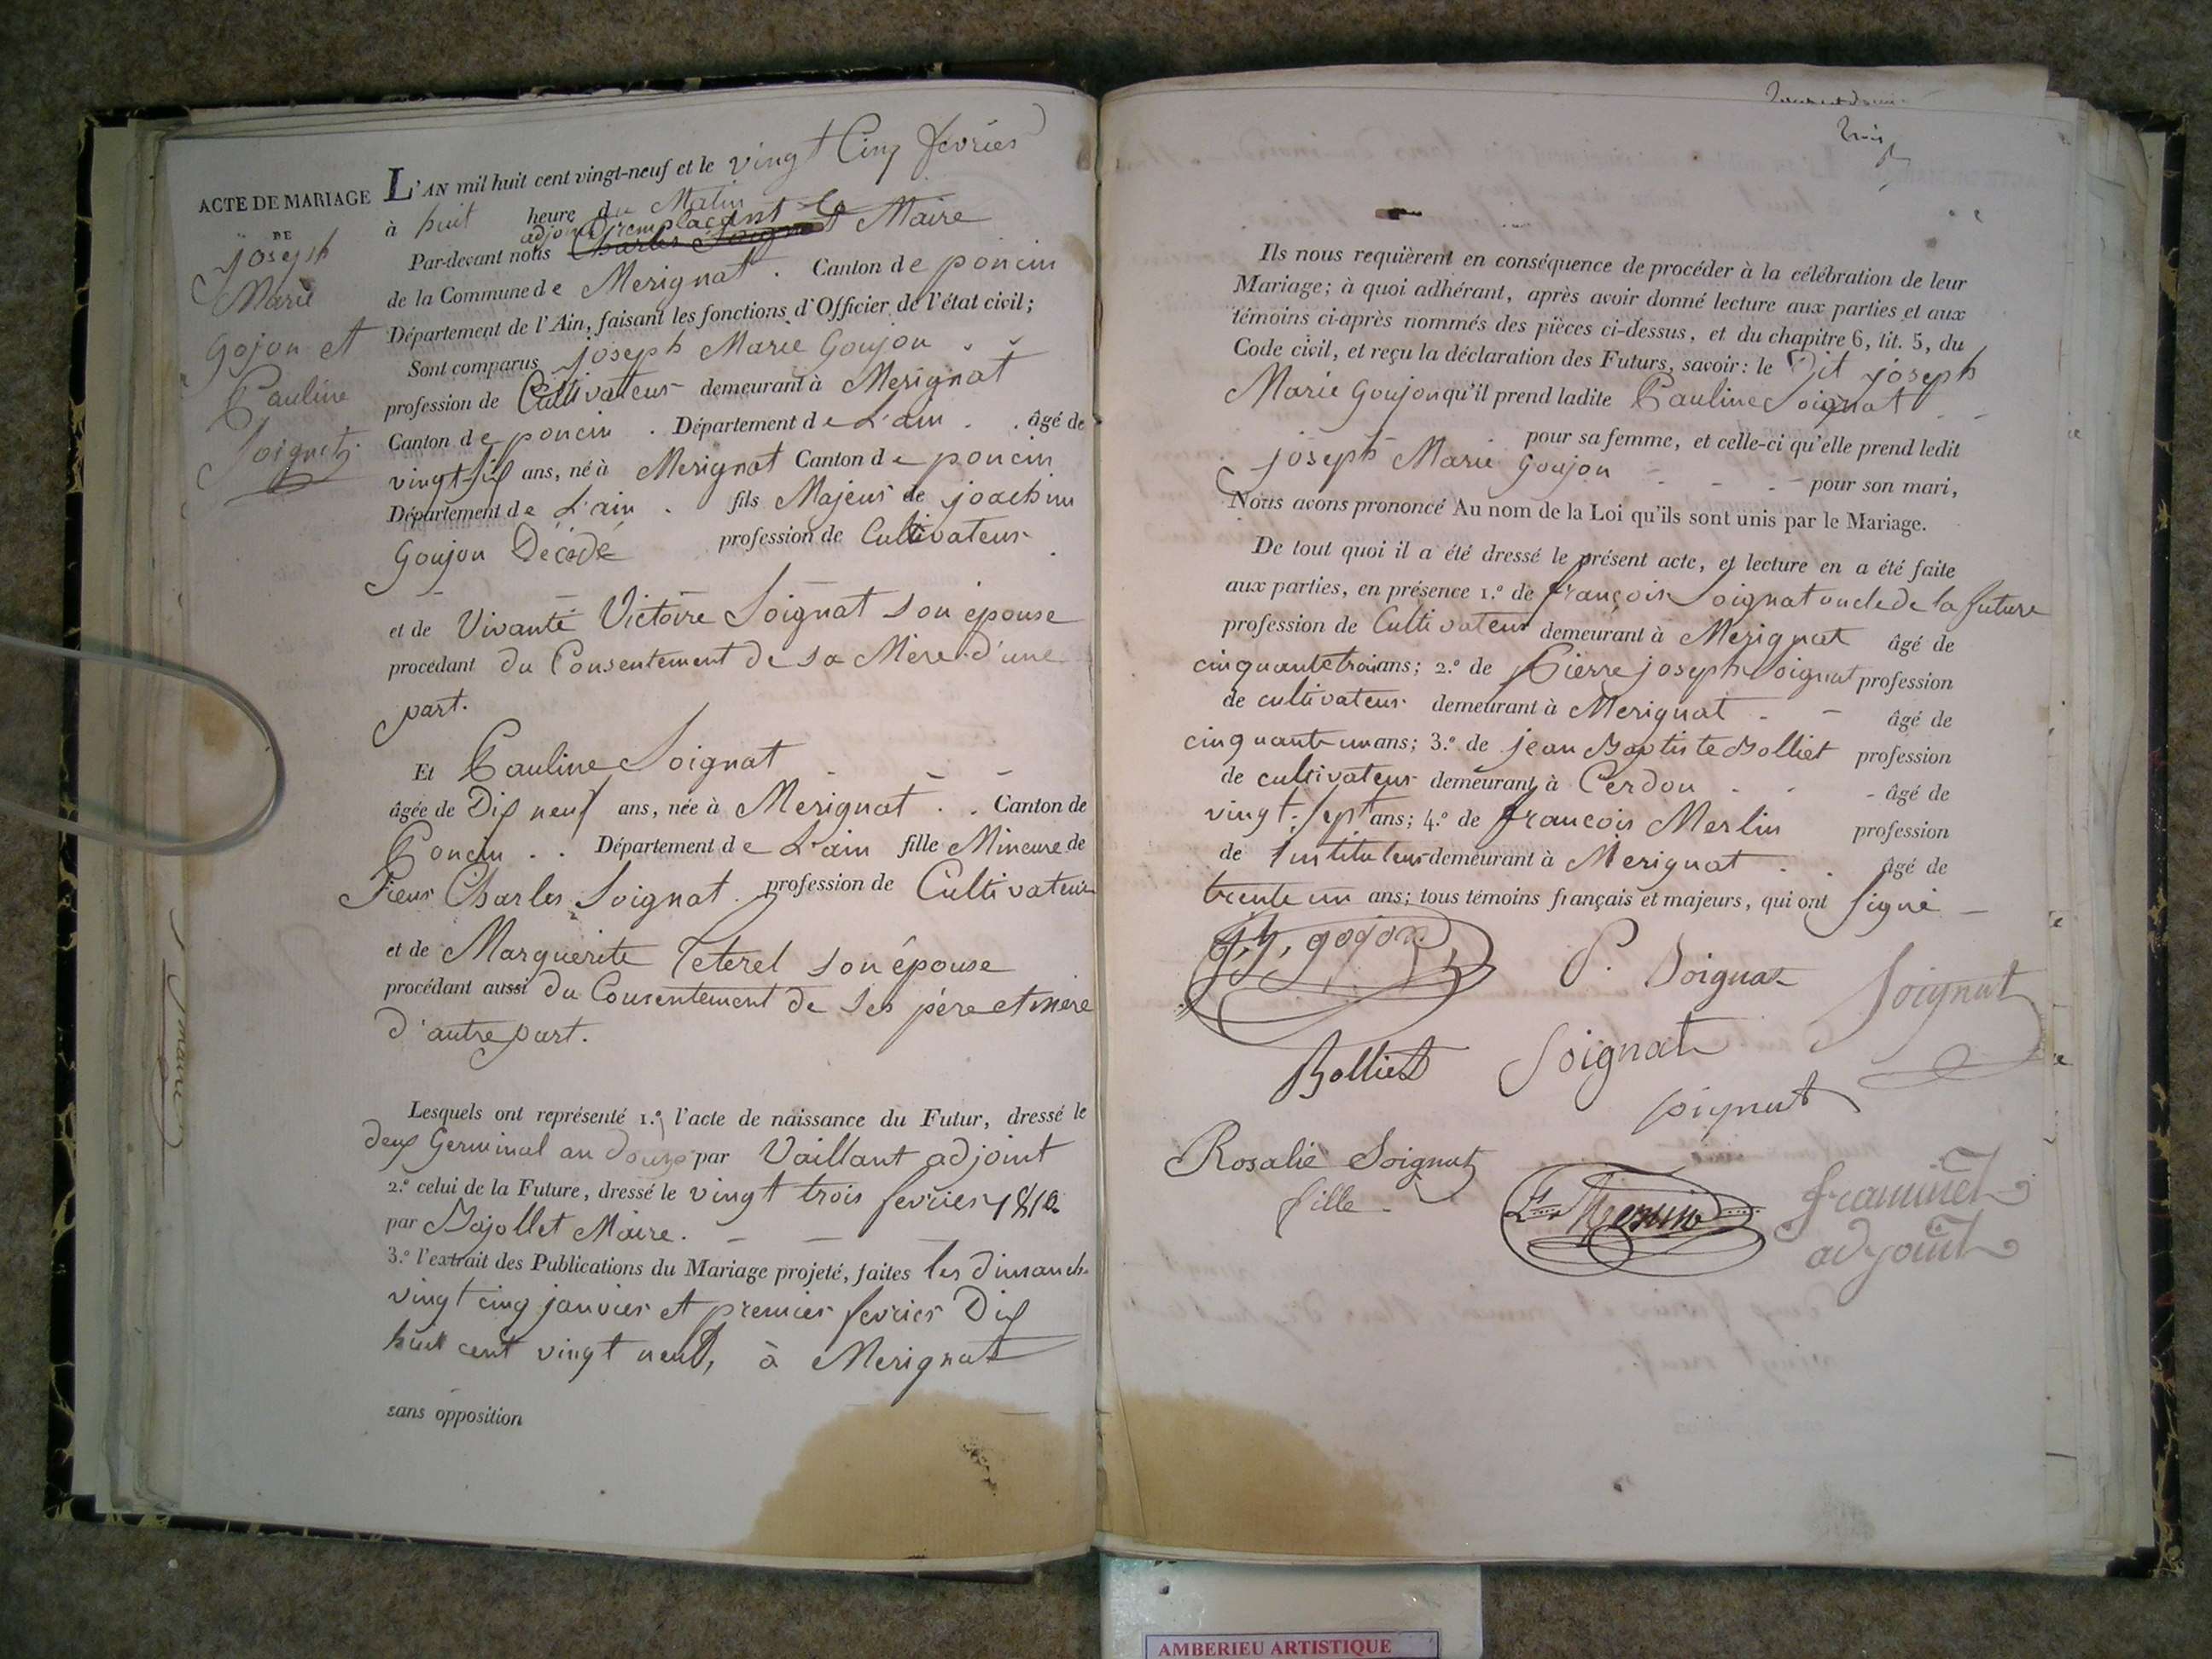 L'AN mil huit cent vingt-neuf et le vingt Cinq fevrier
ACTE DE MARIAGE
DE
joseph
Marie
Gojon et
Pauline
Soignat
à huit heure du Matin
adjoint remplaçant le
Par-devant nous Charles Soignat Maire
de la Commune de Merignat . Canton de poncin
Département de l'Ain, faisant les fonctions d'Officier de l'état civil;
Sont comparus joseph Marie Goujon
profession de Cultivateur demeurant à Merignat
Canton de poncin . Département de L'ain . . âgé de
vingt-six ans, né à Merignat Canton de poncin
Département de L'ain . fils Majeur de joachim
Goujon Décédé profession de Cultivateur
et de Vivante Victoire Soignat son épouse
procédant du Consentement de sa Mère d'une
part.
Et Pauline Soignat
âgée de Dix neuf ans, née à Merignat . . Canton de
Poncin . . Département de L'ain fille Mineure de
Sieur Charles Soignat . profession de Cultivateur
et de Marguerite Teterel son épouse
procédant aussi du Consentement de ses père et mère
d'autre part.
Lesquels ont représenté 1.º l'acte de naissance du Futur, dressé le
deux Germinal an douze par Vaillant adjoint
2.º celui de la Future, dressé le vingt trois fevrier 1810.
par Bajollet Maire.
3.º l'extrait des Publications du Mariage projeté, faites les dimanch
vingt cinq janvier et premier fevrier Dix
huit cent vingt neuf, à Merignat
sans opposition
Ils nous requièrent en conséquence de procéder à la célébration de leur
Mariage; à quoi adhérant, après avoir donné lecture aux parties et aux
témoins ci-après nommés des pièces ci-dessus, et du chapitre 6, tit. 5, du
Code civil, et reçu la déclaration des Futurs, savoir: le Dit joseph
Marie Goujon qu'il prend ladite Pauline Soignat
pour sa femme, et celle-ci qu'elle prend ledit
joseph Marie Goujon pour son mari,
Nous avons prononcé Au nom de la Loi qu'ils sont unis par le Mariage.
De tout quoi il a été dressé le présent acte, et lecture en a été faite
aux parties, en présence 1.º de françois Soignat oncle de la future
profession de Cultivateur demeurant à Merignat âgé de
cinquante trois ans; 2.º de Pierre joseph Soignat profession
de cultivateur demeurant à Merignat âgé de
cinquante un ans; 3.º de jean Baptiste Bolliet profession
de cultivateur demeurant à Cerdon âgé de
vingt-sept ans; 4.º de françois Merlin profession
de instituteur demeurant à Merignat . . âgé de
trente un ans; tous témoins français et majeurs, qui ont signé
gojon
P. Soignat
Soignat
Bolliet
Soignat
soignat
Rosalie Soignat
fille
adjoint
AMBERIEU ARTISTIQUE